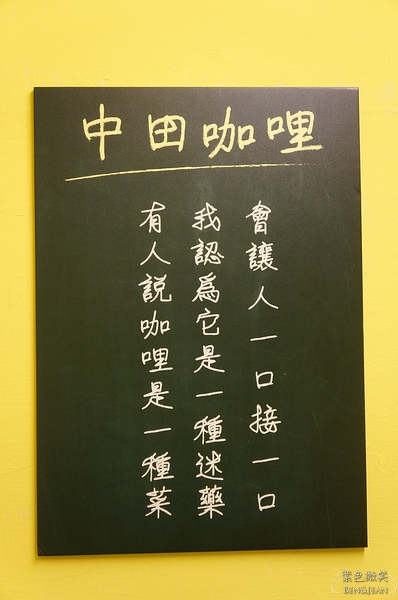 中田咖哩
有人說咖哩是一種菜
我認為它是一種迷藥
會讓人一口接一口
紫色微笑
BEN&JEAN